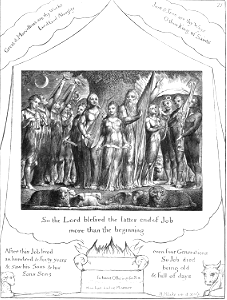 Great & Marvellous are thy Works
Lord God Almighty
Just & True are thy Ways
O thou King of Saints
So the Lord blessed the latter end of Job
more than the beginning
After this Job lived
an hundred & forty years
& saw his Sons & his
Sons Sons
even four Generations
So Job died
being old
& full of days
In burnt Offerings for Sin
thou hast had no Pleasure